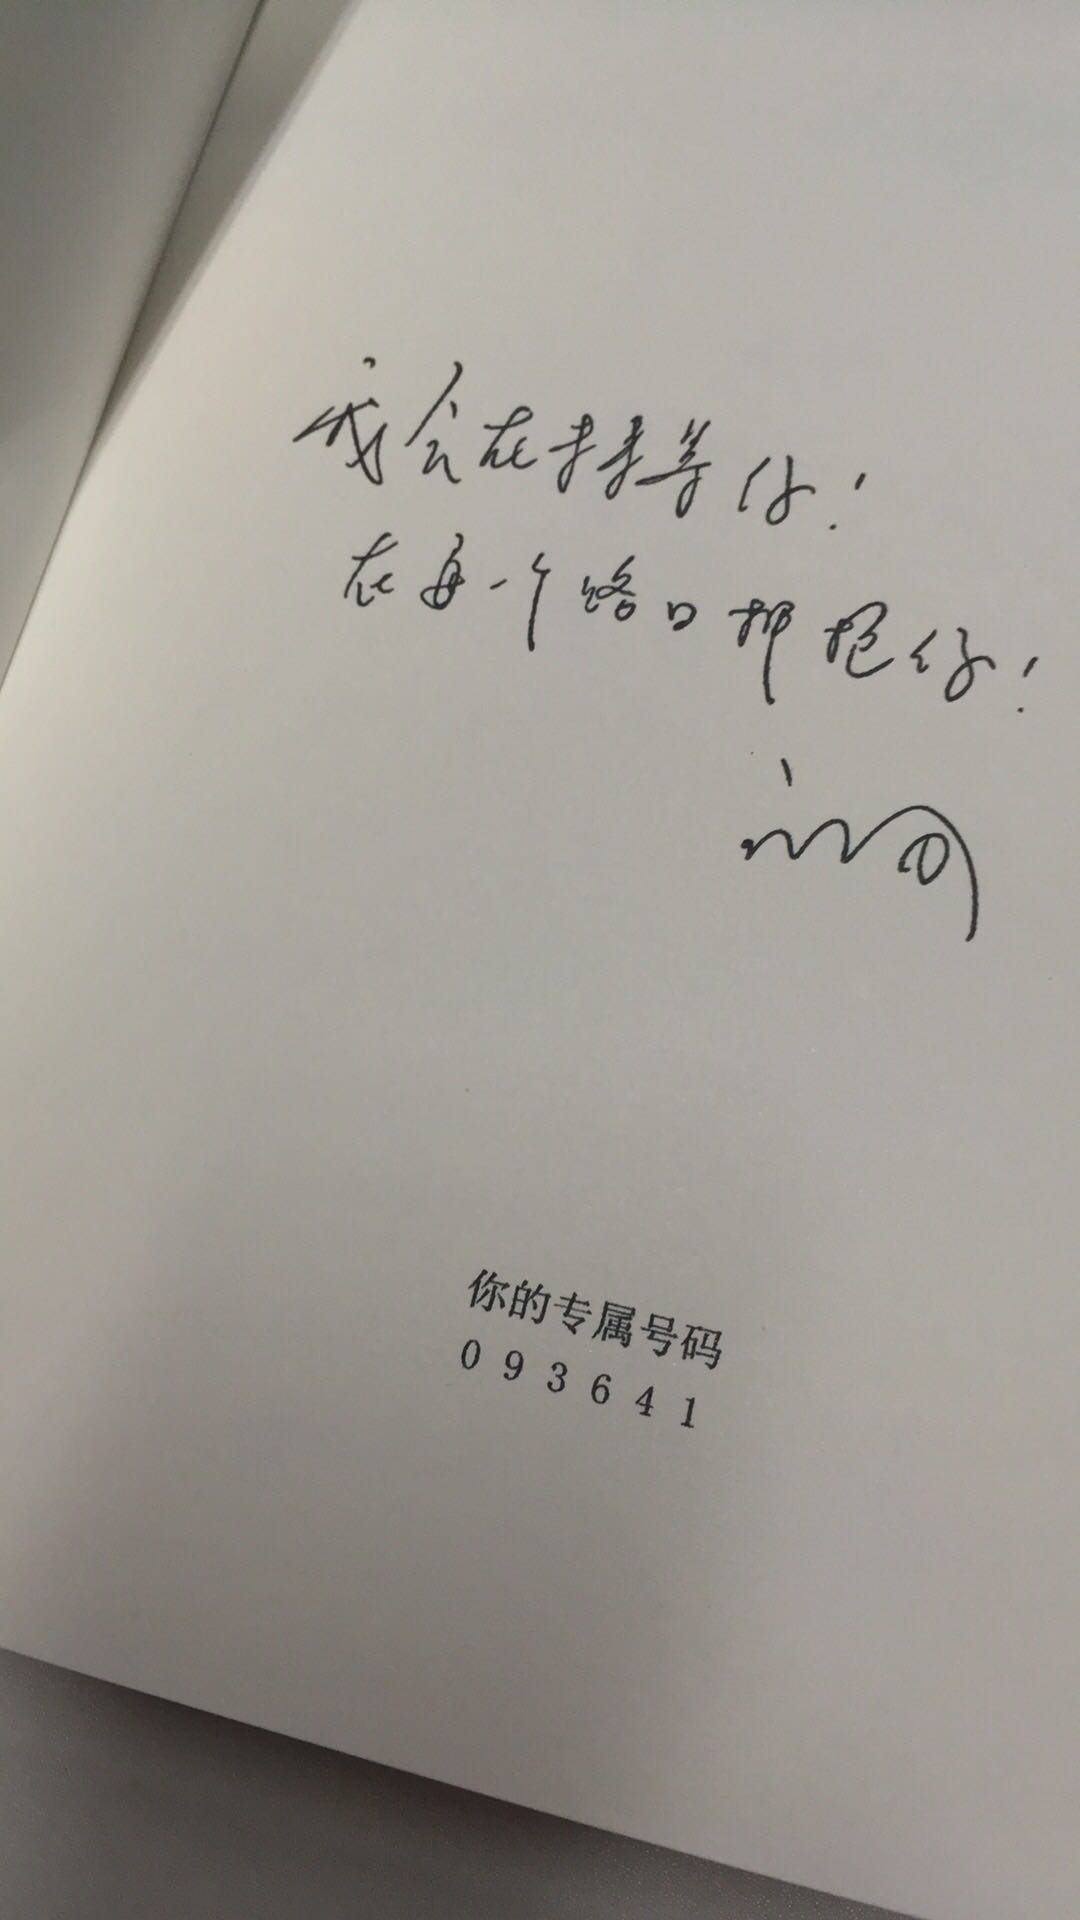 我会在未来等你！
在每一个路口拥抱你！
你的专属号码
093641